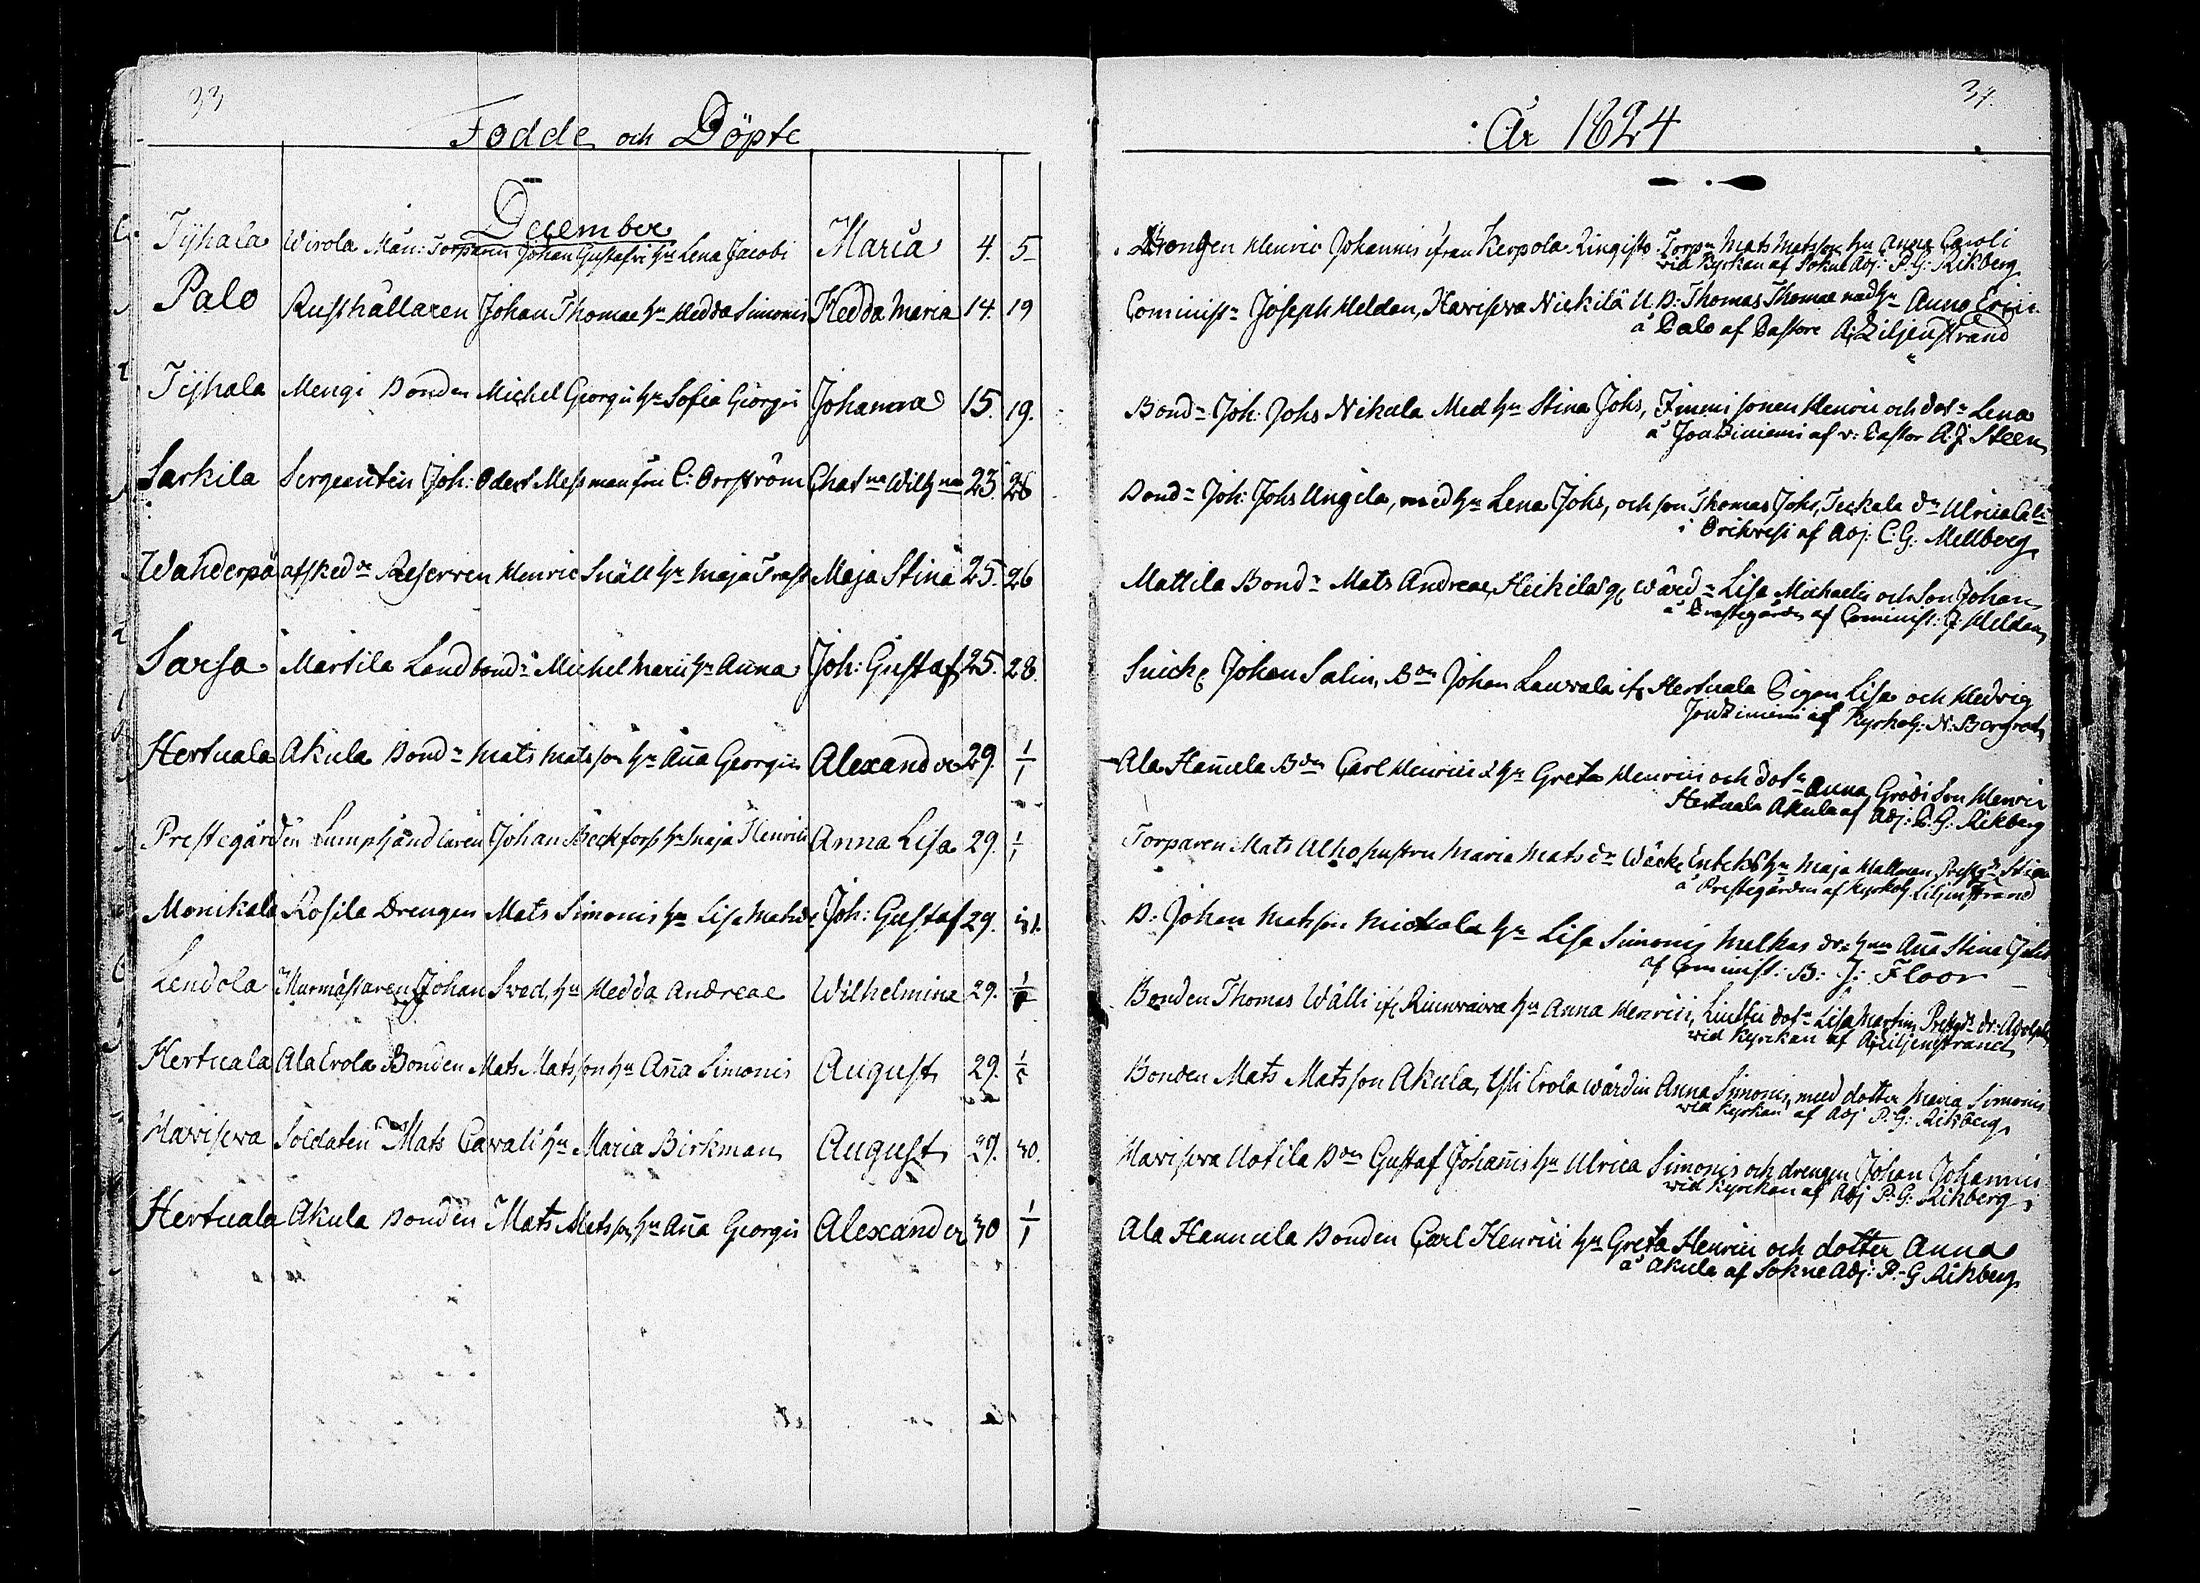 33
Födde och Döpte
December
Tyhala Wirola Mån: Torparen Johan Gustafss hu Lena Jacobi Maria 4. 5
Palo Rusthållaren Johan Thomae hu Hedda Simonis Hedda Maria 14. 19
Tyhala Mengi Bonden Michel Georgii hu Sofia Giorgii Johanna 15. 19.
Sarkila Sergeanten Joh: Odert Messman fru C: Orrström Chat na Wilh na 23. 26
Wahderpä afsked de Reserven Henric Snäll hu Maja Trast Maja Stina 25. 26
Sarsa Martila Landbond n Michel Marci hu Anna Joh: Gustaf 25. 28.
Hertuala Akula Bond n Mats Matsson hu Aña Georgii Alexander 29. 1/1
Prestegården Lumpsamlaren Johan Beckfors hu Maja Henrici Anna Lisa 29. 1/1
Monikala Rosila Drengen Mats Simonis hu Lisa Matsdr Joh: Gustaf 29. 31.
Lendola Murmästaren Johan Swed, hu Hedda Andreae Wilhelmina 29.
Hertuala Ala Erola Bonden Mats Matsson hu Aña Simonis August 29.
Hawiserva Soldaten Mats Cavali hu Maria Birkman August 29. 30.
Hertuala Akula Bonden Mats Matsson hu Aña Georgii Alexander 30 1/1
34.
År 1824
Drengen Henric Johannis ifrån Kerpola Ringisto Torp n Mats Matsson hu Anna Caroli
wid Kyrkan af Sokne Adj: P: G: Rikberg
Cominist r Joseph Heldan, Hawiserva Nickilä U. B: Thomas Thomae med hu Anna Erici
å Palo af Pastore A: Liljenstrand
Bond n Joh: Johs Nikula Med hu Stina Johs, sonen Henric och dot r Lena
å Joutziniemi af v: Pastor A: J: Steen
Bond n Joh: Johs Ungila, med hu Lena Johs, och son Thomas Johs, Teckala dr Ulrica
i Orihvesi af Adj: C: G: Mellberg
Mattila Bond n Mats Andreae, Heikilä Wärd n Lisa Michaelis och Son Johan
å Prestegården af Cominist: J: Heldan
Snick Johan Salin, B den Johan Lauvala ifr Hertuala Pigan Lisa och Hedvig
Joutziniemi af Kyrkoh: N: Bergroth
Ala Hañula B den Carl Henrici hu Greta Henrici och dot r Anna, Grödi Son Henric
Hertuala Akula af Adj: P: G: Rikberg
Torparen Mats Alho, hustru Maria Mats dr hu Maja Hallman, Prestg Stina
å Prestegården af Kyrkoh Liljenstrand
B: Johan Matsson Mickola hu Lisa Simonis Melkas dr: Aña Stina Johs
af Cominist: B: J: Floor
Bonden Thomas Wälli ifr Rumraiva hu Anna Henrici, dot r Lisa Martini Prestg dr: Adolph
wid Kyrckan af A: Liljenstrand
Bonden Mats Matsson Akula, Yli Erola wärdin Anna Simonis, med dotter Maria Simonis
wid Kyrkan af Adj P: G: Rikberg
Hawiserva Uotila B den Gustaf Johañis hu Ulrica Simonis och drengen Johan Johannis
wid Kyrckan af Adj P: G: Rikberg
Ala Hannula Bonden Carl Henrici hu Greta Henrici och dotter Anna
å Akula af Sokne Adj: P: G Rikberg